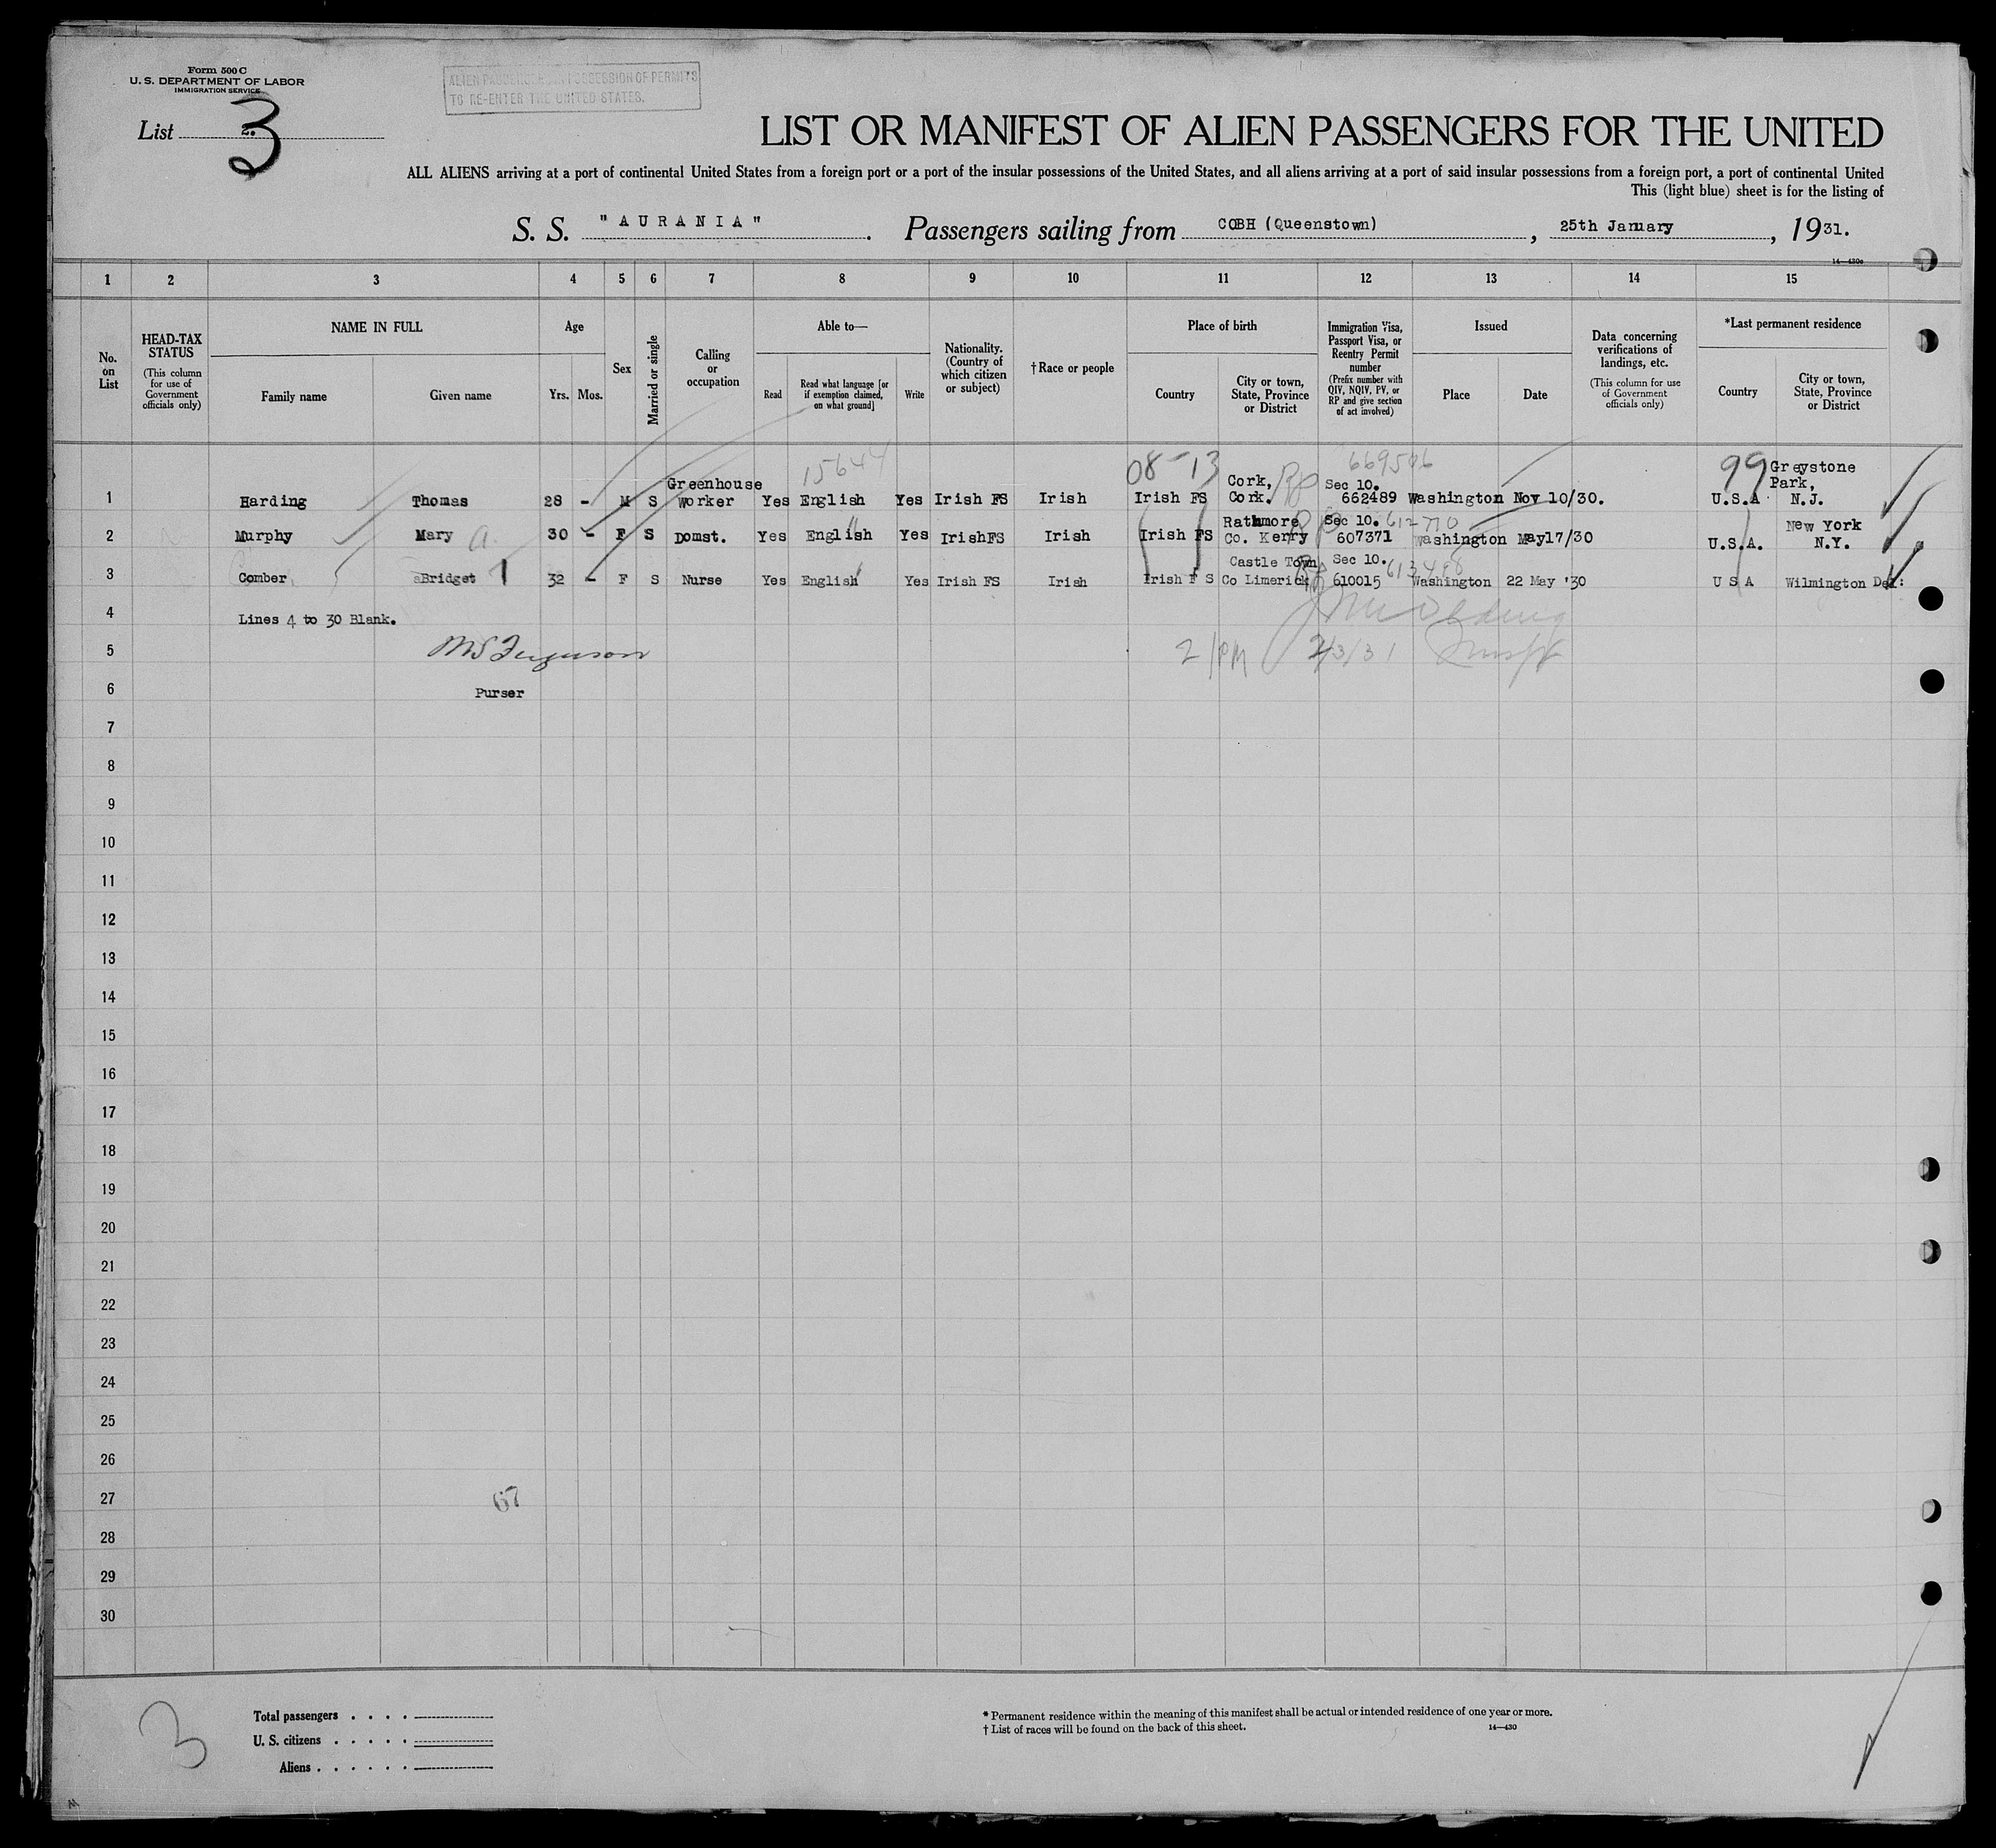 Form 500 C
U. S. DEPARTMENT OF LABOR
IMMIGRATION SERVICE
ALIEN PASSENGERS IN POSSESSION OF PERMITS
TO RE-ENTER THE UNITED STATES.
List 2. 3
LIST OR MANIFEST OF ALIEN PASSENGERS FOR THE UNITED
ALL ALIENS arriving at a port of continental United States from a foreign port or a port of the insular possessions of the United States, and all aliens arriving at a port of said insular possessions from a foreign port, a port of continental United
This (light blue) sheet is for the listing of
S. S. "AURANIA". Passengers sailing from COBH (Queenstown), 25th January, 1931.
14—430c
1 2 3 4 5 6 7 8 9 10 11 12 13 14 15
No. on List
HEAD-TAX STATUS
(This column for use of Government officials only)
NAME IN FULL
Family name Given name
Age
Yrs. Mos.
Sex
Married or single
Calling or occupation
Able to—
Read Read what language [or if exemption claimed, on what ground] Write
Nationality. (Country of which citizen or subject)
†Race or people
Place of birth
Country City or town, State, Province or District
Immigration Visa, Passport Visa, or Reentry Permit number
(Prefix number with QIV, NQIV, PV, or RP and give section of act involved)
Issued
Place Date
Data concerning verifications of landings, etc.
(This column for use of Government officials only)
*Last permanent residence
Country City or town, State, Province or District
15644 08-13 669506 99
1 Harding Thomas 28 - M S Greenhouse Worker Yes English Yes Irish FS Irish Irish FS Cork, Cork. RP Sec 10. 662489 Washington Nov 10/30. U.S.A Greystone Park, N.J.
2 Murphy Mary a. 30 - F S Domst. Yes English Yes IrishFS Irish Irish FS Rathmore Co. Kerry RP Sec 10. 612710 607371 Washington May17/30 U.S.A. New York N.Y.
3 Comber Bridget 32 - F S Nurse Yes English Yes Irish FS Irish Irish F S Castle Town Co Limerick RP Sec 10. 610015 Washington 22 May '30 U S A Wilmington Del:
4 Lines 4 to 30 Blank.
5 Ferguson 2/PM 2/3/31
6 Purser
7
8
9
10
11
12
13
14
15
16
17
18
19
20
21
22
23
24
25
26
27 67
28
29
30
3
Total passengers . . . .
U. S. citizens . . . . .
Aliens . . . . . .
* Permanent residence within the meaning of this manifest shall be actual or intended residence of one year or more.
† List of races will be found on the back of this sheet. 14—430